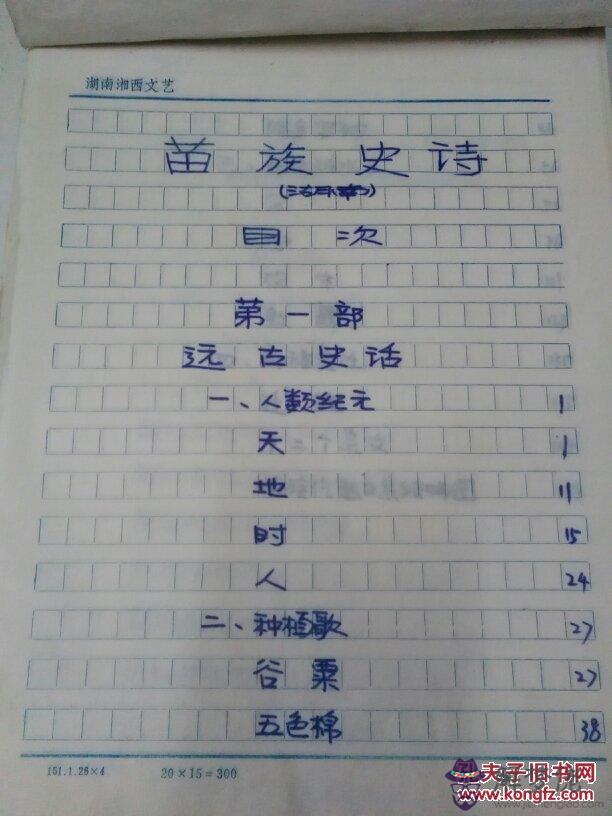 湖南湘西文艺
苗族史诗
目次
第一部
远古史话
一、人类纪元 1
天 1
地 11
时 15
人 24
二、种植歌 27
谷粟 27
五色棉 38
151.1.26×4 20×15=300
夫子旧书网
www.kongfz.com